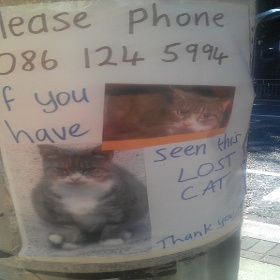 lease phone
086 124 5994
f you
have
seen this
LOST
CAT
Thank you